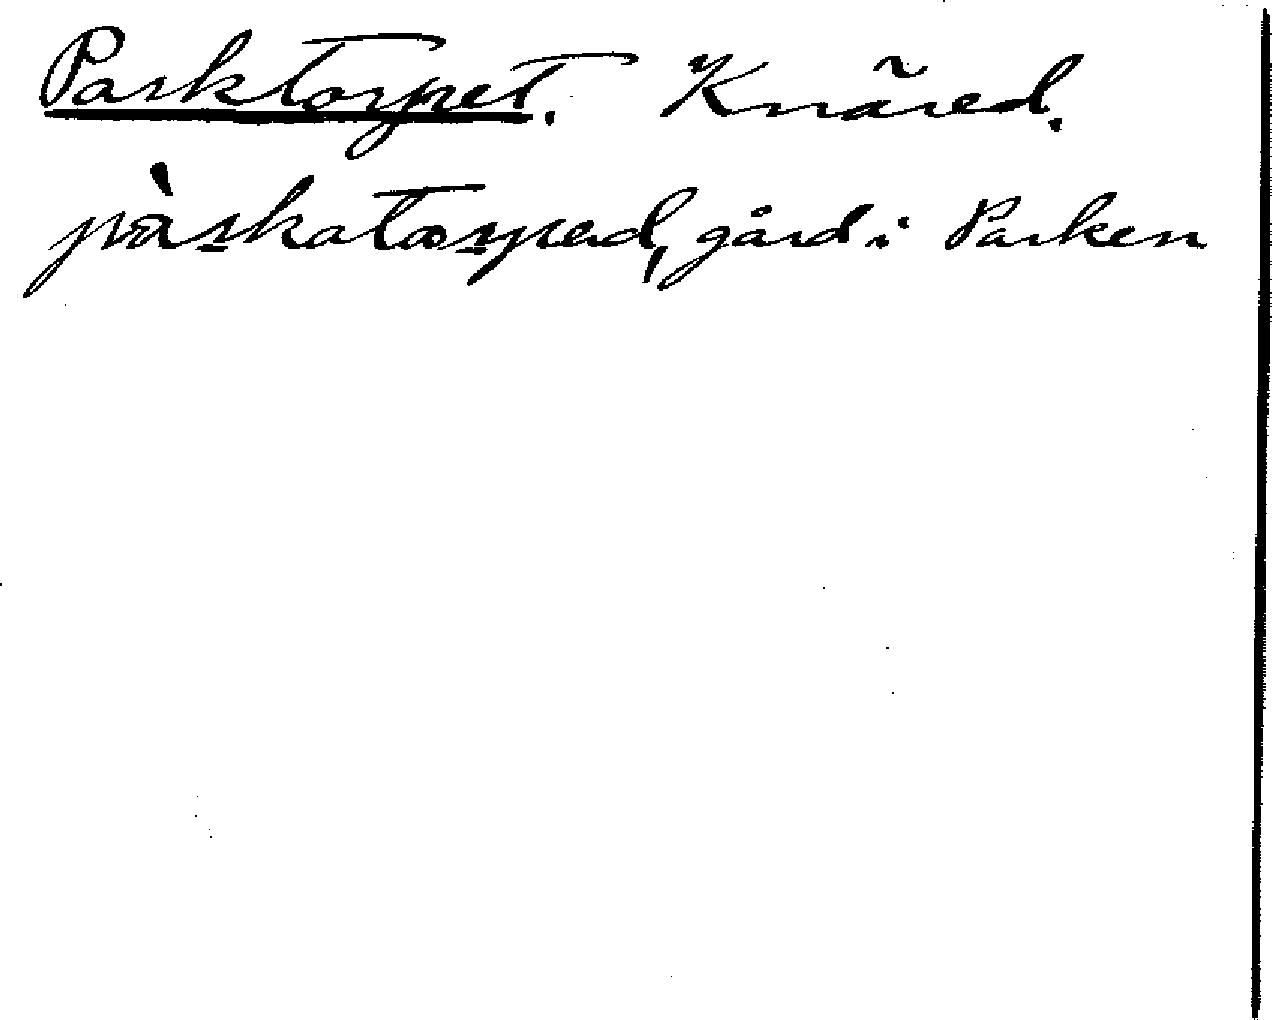 Parktorpet. Knäred.
pàrkatorpad, gård i Parken